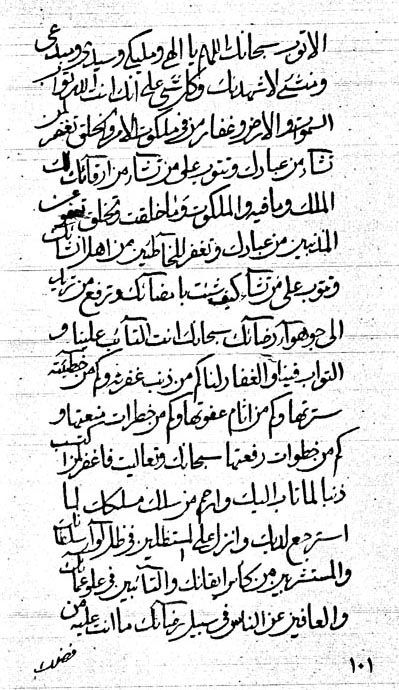 الاتوب سبحانك اللهم يا الهي ومليكي وسيدي ومبدعي
ومنشئي لاشهدنك وكل شئ على انك انت الله تواب
السموات والارض وغفار من في ملكوت الامر والخلق تغفر لمن
تشاء من عبادك وتتوب على من تشاء من ارقائك لك
الملك وما فيه والملكوت وما خلقت وتخلق تعفو عن
المذنبين من عبادك وتغفر للخاطئين من اهل
وتتوب على من تشاء كيف شئت بامضائك وترفع من تريد
الى جو هواء رضائك سبحانك انت التائب علينا و
التواب فينا والغفار لنا كم من ذنب غفرته وكم من خطيئة
سترتها وكم من اثام عفوتها وكم من خطرات منعتها و
كم من خطوات رفعتها سبحانك وتعاليت فاغفر لمن اكتسب
ذنبا لما تاب اليك وارحم من سلك مسلكك لما
استرجع لديك وانزل على المستظلين في ظل
والمستشربين من كاس ايقانك والتائبين في علو
والعافين عن الناس في سبيل رضائك ما انت عليه من
فضلك
١٠١